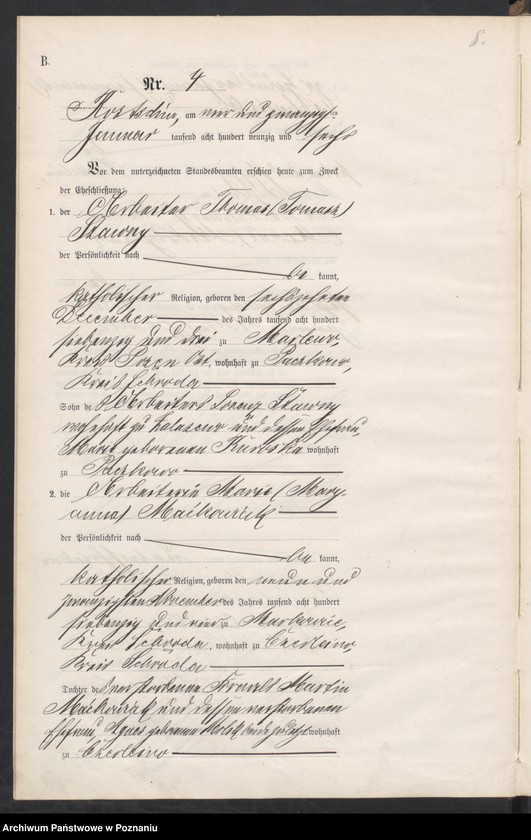 8.
B.
Nr. 4
Kostschin, am vier und zwanzigsten
Januar tausend acht hundert neunzig und sechs
Vor dem unterzeichneten Standesbeamten erschien heute zum Zweck
der Eheschließung:
1. der Arbeiter Thomas (Tomasz)
Stawny
der Persönlichkeit nach
be kannt,
katholischer Religion, geboren den sechszehnten
December des Jahres tausend acht hundert
siebenzig und drei zu
Kreis Posen Ost, wohnhaft zu
Kreis Schroda
Sohn des Arbeiters Lorenz Stawny
wohnhaft zu und dessen Ehefrau,
Marie geborenen wohnhaft
zu
2. die Arbeiterin Marie (Mary-
anna) Maćkowiak
der Persönlichkeit nach
be kannt,
katholischer Religion, geboren den neun und
zwanzigsten November des Jahres tausend acht hundert
siebenzig und vier zu
Kreis Schroda, wohnhaft zu
Kreis Schroda
Tochter des verstorbenen Martin
Maćkowiak und dessen verstorbenen
Ehefrau, Agnes geborenen wohnhaft
zu
Archiwum Państwowe w Poznaniu